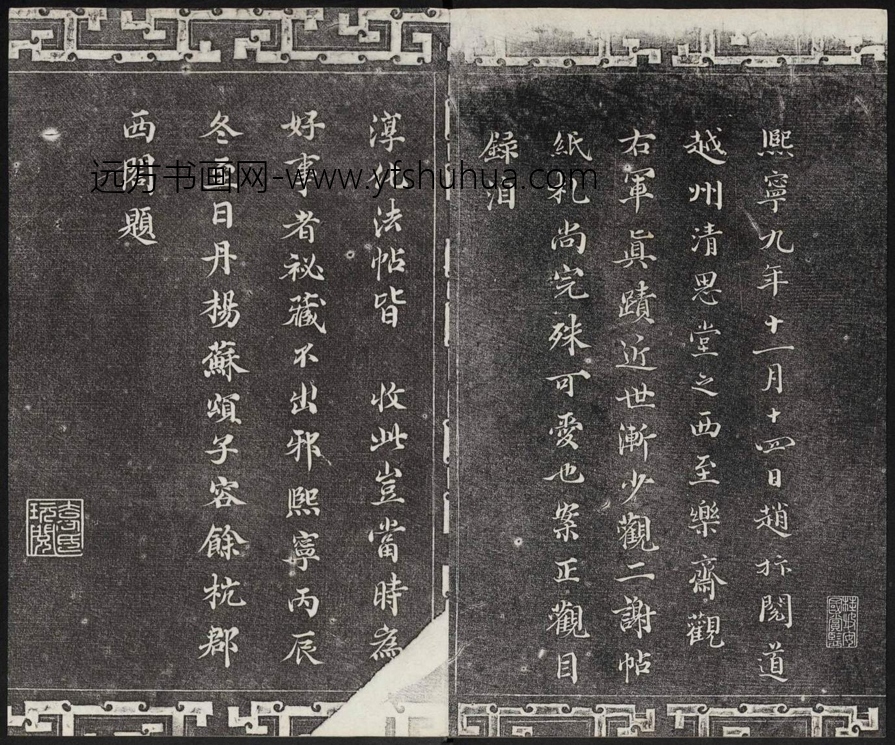 熙寧九年十一月十四日趙抃閱道
越州清思堂之西至樂齋觀
右軍眞蹟近世漸少觀二謝帖
紙札尚完殊可愛也案正觀目
録洎
淳化法帖皆 收此豈當時為
好事者祕藏不出邪熙寧丙辰
冬至日丹楊蘇頌子容餘杭郡
西閣題
远方书画网-www.yfshuhua.com